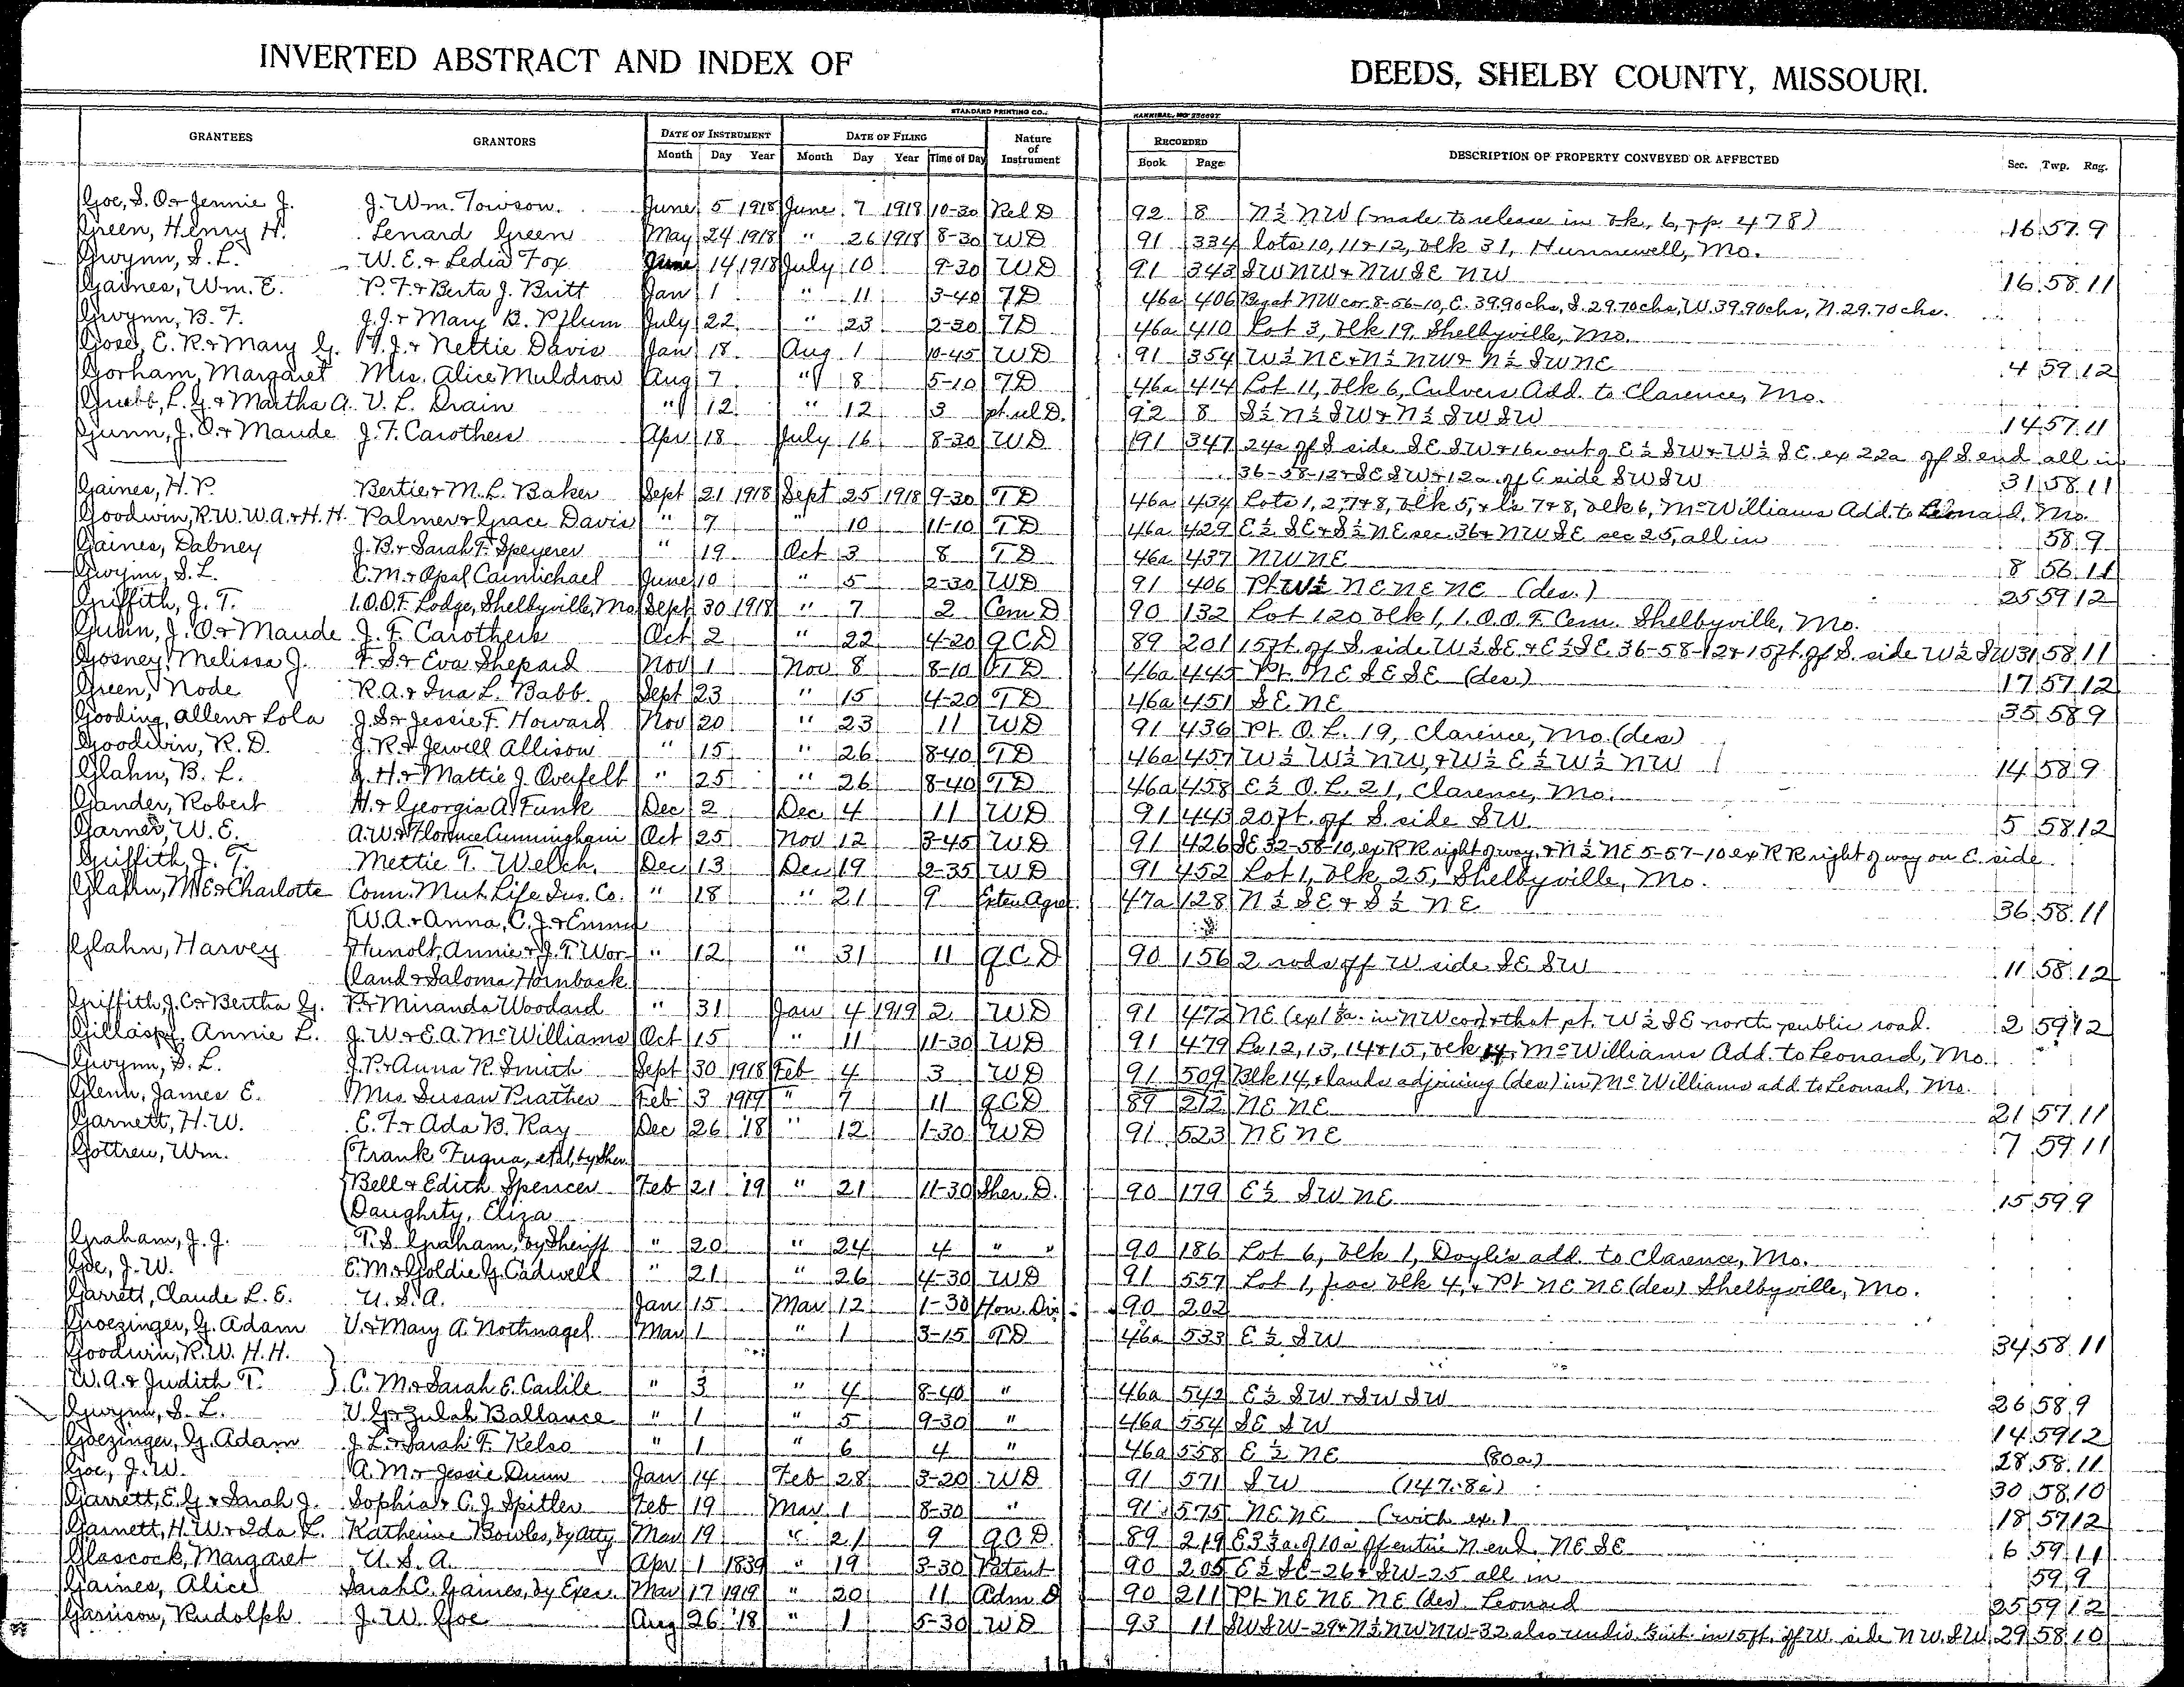 INVERTED ABSTRACT AND INDEX OF DEEDS, SHELBY COUNTY, MISSOURI.
STANDARD PRINTING CO., HANNIBAL, MO
GRANTEES GRANTORS DATE OF INSTRUMENT DATE OF FILING Nature of Instrument RECORDED DESCRIPTION OF PROPERTY CONVEYED OR AFFECTED Sec. Twp. Rng.
Month Day Year Month Day Year Time of Day Book Page
Goe, S. O. & Jennie J. J. Wm. Towson. June 5 1918 June 7 1918 10-30 Rel D 92 8 N½ NW (made to release in bk, 6, pp 478) 16 57 9
Green, Henry H. Lenard Green May 24 1918 " 26 1918 8-30 WD 91 334 lots 10, 11 & 12, blk 31, Hunnewell, Mo.
Gwynn, S. L. W. E. & Ledia Fox June 14 1918 July 10 9-30 WD 91 343 SW NW & NW SE NW 16 58 11
Gaines, Wm. E. P. F. & Berta J. Britt Jan 1 " 11 3-40 TD 46a 406 Beg at NW cor. 8-56-10, E. 39.90 chs, S. 29.70 chs, W. 39.90 chs, N. 29.70 chs.
Gwynn, B. F. J. J. & Mary B. Pflum July 22 " 23 2-30 TD 46a 410 Lot 3, blk 19, Shelbyville, Mo.
Gose, E. R. & Mary G. H. J. & Nettie Davis Jan 18 Aug 1 10-45 WD 91 354 W½ NE & N½ NW & N½ SW NE 4 59 12
Gorham, Margaret Mrs. Alice Muldrow Aug 7 " 8 5-10 TD 46a 414 Lot 11, blk 6, Culvers Add. to Clarence, Mo.
L. G. & Martha A. V. L. Drain " 12 " 12 3 pt. rel D. 92 8 S½ N½ SW & N½ SW SW 14 57 11
Gunn, J. O. & Maude J. F. Carothers Apr 18 July 16 8-30 WD 91 347 24a off S side SE SW & 16a out of E½ SW & W½ SE ex 22a off S. end all in
36-58-12 & SE SW & 12a. off E side SW SW 31 58 11
Gaines, H. P. Bertie & M. L. Baker Sept 21 1918 Sept 25 1918 9-30 TD 46a 434 Lots 1, 2, 7 & 8, blk 5, & ls 7 & 8, blk 6, McWilliams Add. to Leonard, Mo.
Goodwin, R. W. W. A. & H. H. Palmer & Grace Davis " 7 " 10 11-10 TD 46a 429 E½ SE & S½ NE sec 36 & NW SE sec 25, all in 58 9
Gaines, Dabney J. B. & Sarah F. Speyerer " 19 Oct 3 8 TD 46a 437 NW NE 8 56 11
Gwynn, S. L. C. M. & Opal Carmichael June 10 " 5 2-30 WD 91 406 Pt W½ NE NE NE (des.) 25 59 12
Griffith, J. T. I. O. O. F. Lodge, Shelbyville, Mo Sept 30 1918 " 7 2 Cem D 90 132 Lot 120 blk 1, I. O. O. F. Cem. Shelbyville, Mo.
Gunn, J. O. & Maude J. F. Carothers Oct 2 " 22 4-20 QCD 89 201 15ft. off S. side W½ SE & E½ SE 36-58-12 & 15ft. off S. side W½ SW 31 58 11
Gosney, Melissa J. F. S. & Eva Shepard Nov 1 Nov 8 8-10 TD 46a 445 Pt. NE SE SE (des.) 17 57 12
Green, Node R. A. & Ina L. Babb. Sept 23 " 15 4-20 TD 46a 451 SE NE 35 58 9
Gooding, Allen & Lola J. S. & Jessie F. Howard Nov 20 " 23 11 WD 91 436 Pt. O. L. 19, Clarence, Mo. (des)
Goodwin, R. D. J. R. & Jewell Allison " 15 " 26 8-40 TD 46a 457 W½ W½ NW, & W½ E½ W½ NW 14 58 9
Glahn, B. L. J. H. & Mattie J. Overfelt " 25 " 26 8-40 TD 46a 458 E½ O. L. 21, Clarence, Mo.
Gander, Robert H. & Georgia A. Funk Dec 2 Dec 4 11 WD 91 443 20ft. off S. side SW. 5 58 12
Garner, W. E. A. W. & Florence Cunningham Oct 25 Nov 12 3-45 WD 91 426 SE 32-58-10, ex RR right of way, & N½ NE 5-57-10 ex RR right of way on E. side
Griffith, J. T. Mettie T. Welch. Dec 13 Dec 19 2-35 WD 91 452 Lot 1, blk 25, Shelbyville, Mo.
Glahn, M. E. & Charlotte Conn. Mut. Life Ins. Co. " 18 " 21 9 Exten Agree 47a 128 N½ SE & S½ NE 36 58 11
W. A. & Anna, C. J. & Emma
Glahn, Harvey Hunolt, Annie & J. T. Wor- " 12 " 31 11 QCD 90 156 2 rods off W side SE SW 11 58 12
land & Saloma Hornback
Griffith, J. C. & Bertha G. P. & Miranda Woodard " 31 Jan 4 1919 2 WD 91 472 NE (ex 1 8a. in NW cor) & that pt. W½ SE north public road. 2 59 12
Gillaspy, Annie L. J. W. & E. A. McWilliams Oct 15 " 11 11-30 WD 91 479 Ls 12, 13, 14 & 15, blk 14, McWilliams Add. to Leonard, Mo.
Gwynn, S. L. J. P. & Anna R. Smith Sept 30 1918 Feb 4 3 WD 91 509 Blk 14, & lands adjoining (des) in McWilliams add to Leonard, Mo.
Glenn, James E. Mrs Susan Prather Feb 3 1919 " 7 11 QCD 89 212 NE NE 21 57 11
Garnett, H. W. E. F. & Ada B. Ray Dec 26 '18 " 12 1-30 WD 91 523 NE NE 7 59 11
Gottren, Wm. Frank Fuqua, et al, by Sher.
Bell & Edith Spencer Feb 21 '19 " 21 11-30 Sher. D. 90 179 E½ SW NE 15 59 9
Daughrity, Eliza
Graham, J. J. T. S. Graham, by Sheriff " 20 " 24 4 " " 90 186 Lot 6, blk 1, Doyle's add. to Clarence, Mo.
Goe, J. W. E. M. & Goldie G. Cadwell " 21 " 26 4-30 WD 91 557 Lot 1, frac blk 4, & Pt NE NE (des) Shelbyville, Mo.
Garrett, Claude L. E. U. S. A. Jan 15 Mar 12 1-30 Hon. Dis. 90 202
Groezinger, G. Adam V. & Mary A. Nothnagel Mar 1 " 1 3-15 TD 46a 533 E½ SW 34 58 11
Goodwin, R. W. H. H.
W. A. & Judith T. C. M. & Sarah E. Carlile " 3 " 4 8-40 " 46a 542 E½ SW & SW SW 26 58 9
Gwynn, S. L. V. G. & Zulah Ballance " 1 " 5 9-30 " 46a 554 SE SW 14 59 12
Goezinger, G. Adam J. L. & Sarah F. Kelso " 1 " 6 4 " 46a 558 E½ NE (80a) 28 58 11
Goe, J. W. A. M. & Jessie Dunn Jan 14 Feb 28 3-20 WD 91 571 SW (147.8a) 30 58 10
Garrett, E. G. & Sarah J. Sophia & C. J. Spitler Feb 19 Mar 1 8-30 " 91 575 NE NE (with ex.) 18 57 12
Garnett, H. W. & Ida L. Katherine Bowles, by Atty Mar 19 " 21 9 QCD 89 219 E 3⅓a. of 10a off entire N. end. NE SE 6 59 11
Glascock, Margaret U. S. A. Apr 1 1839 " 19 3-30 Patent 90 205 E½ SE-26 & SW-25 all in 59 9
Gaines, Alice Sarah C. Gaines, by Exec. Mar 17 1919 " 20 11 Adm D 90 211 Pt NE NE NE (des) Leonard 25 59 12
Garrison, Rudolph J. W. Goe Aug 26 '18 " 1 5-30 WD 93 11 SW SW-29 & N½ NW NW-32 also undiv. int. in 15ft. off W. side NW. SW 29 58 10